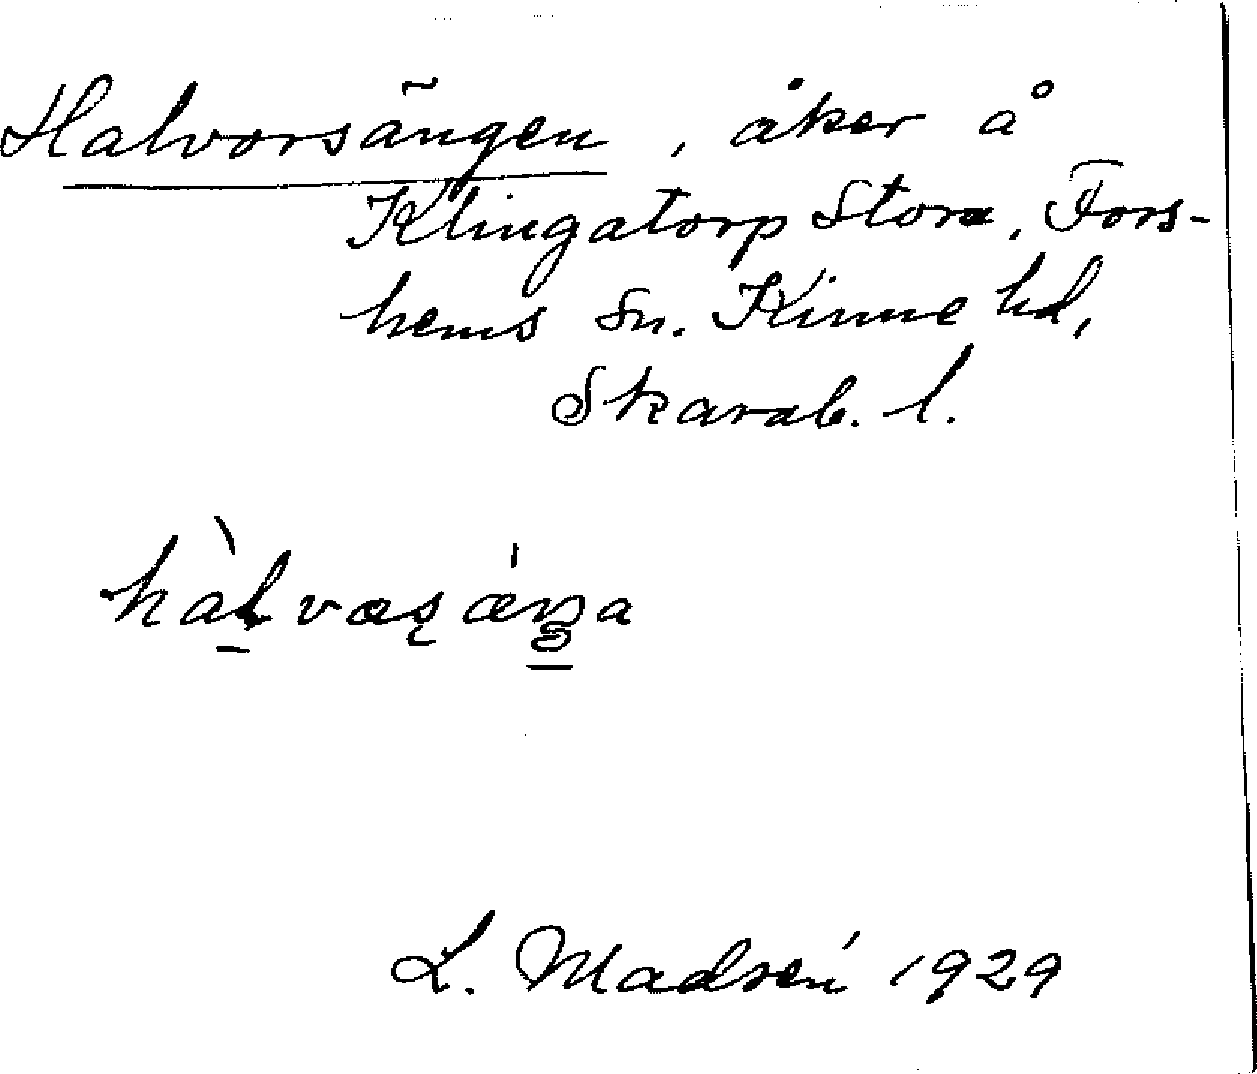 Halvorsängen, åker å
Klingatorp Stora, Fors-
hems sn. Kinne hd,
Skarab. l.
L. Madsén 1929